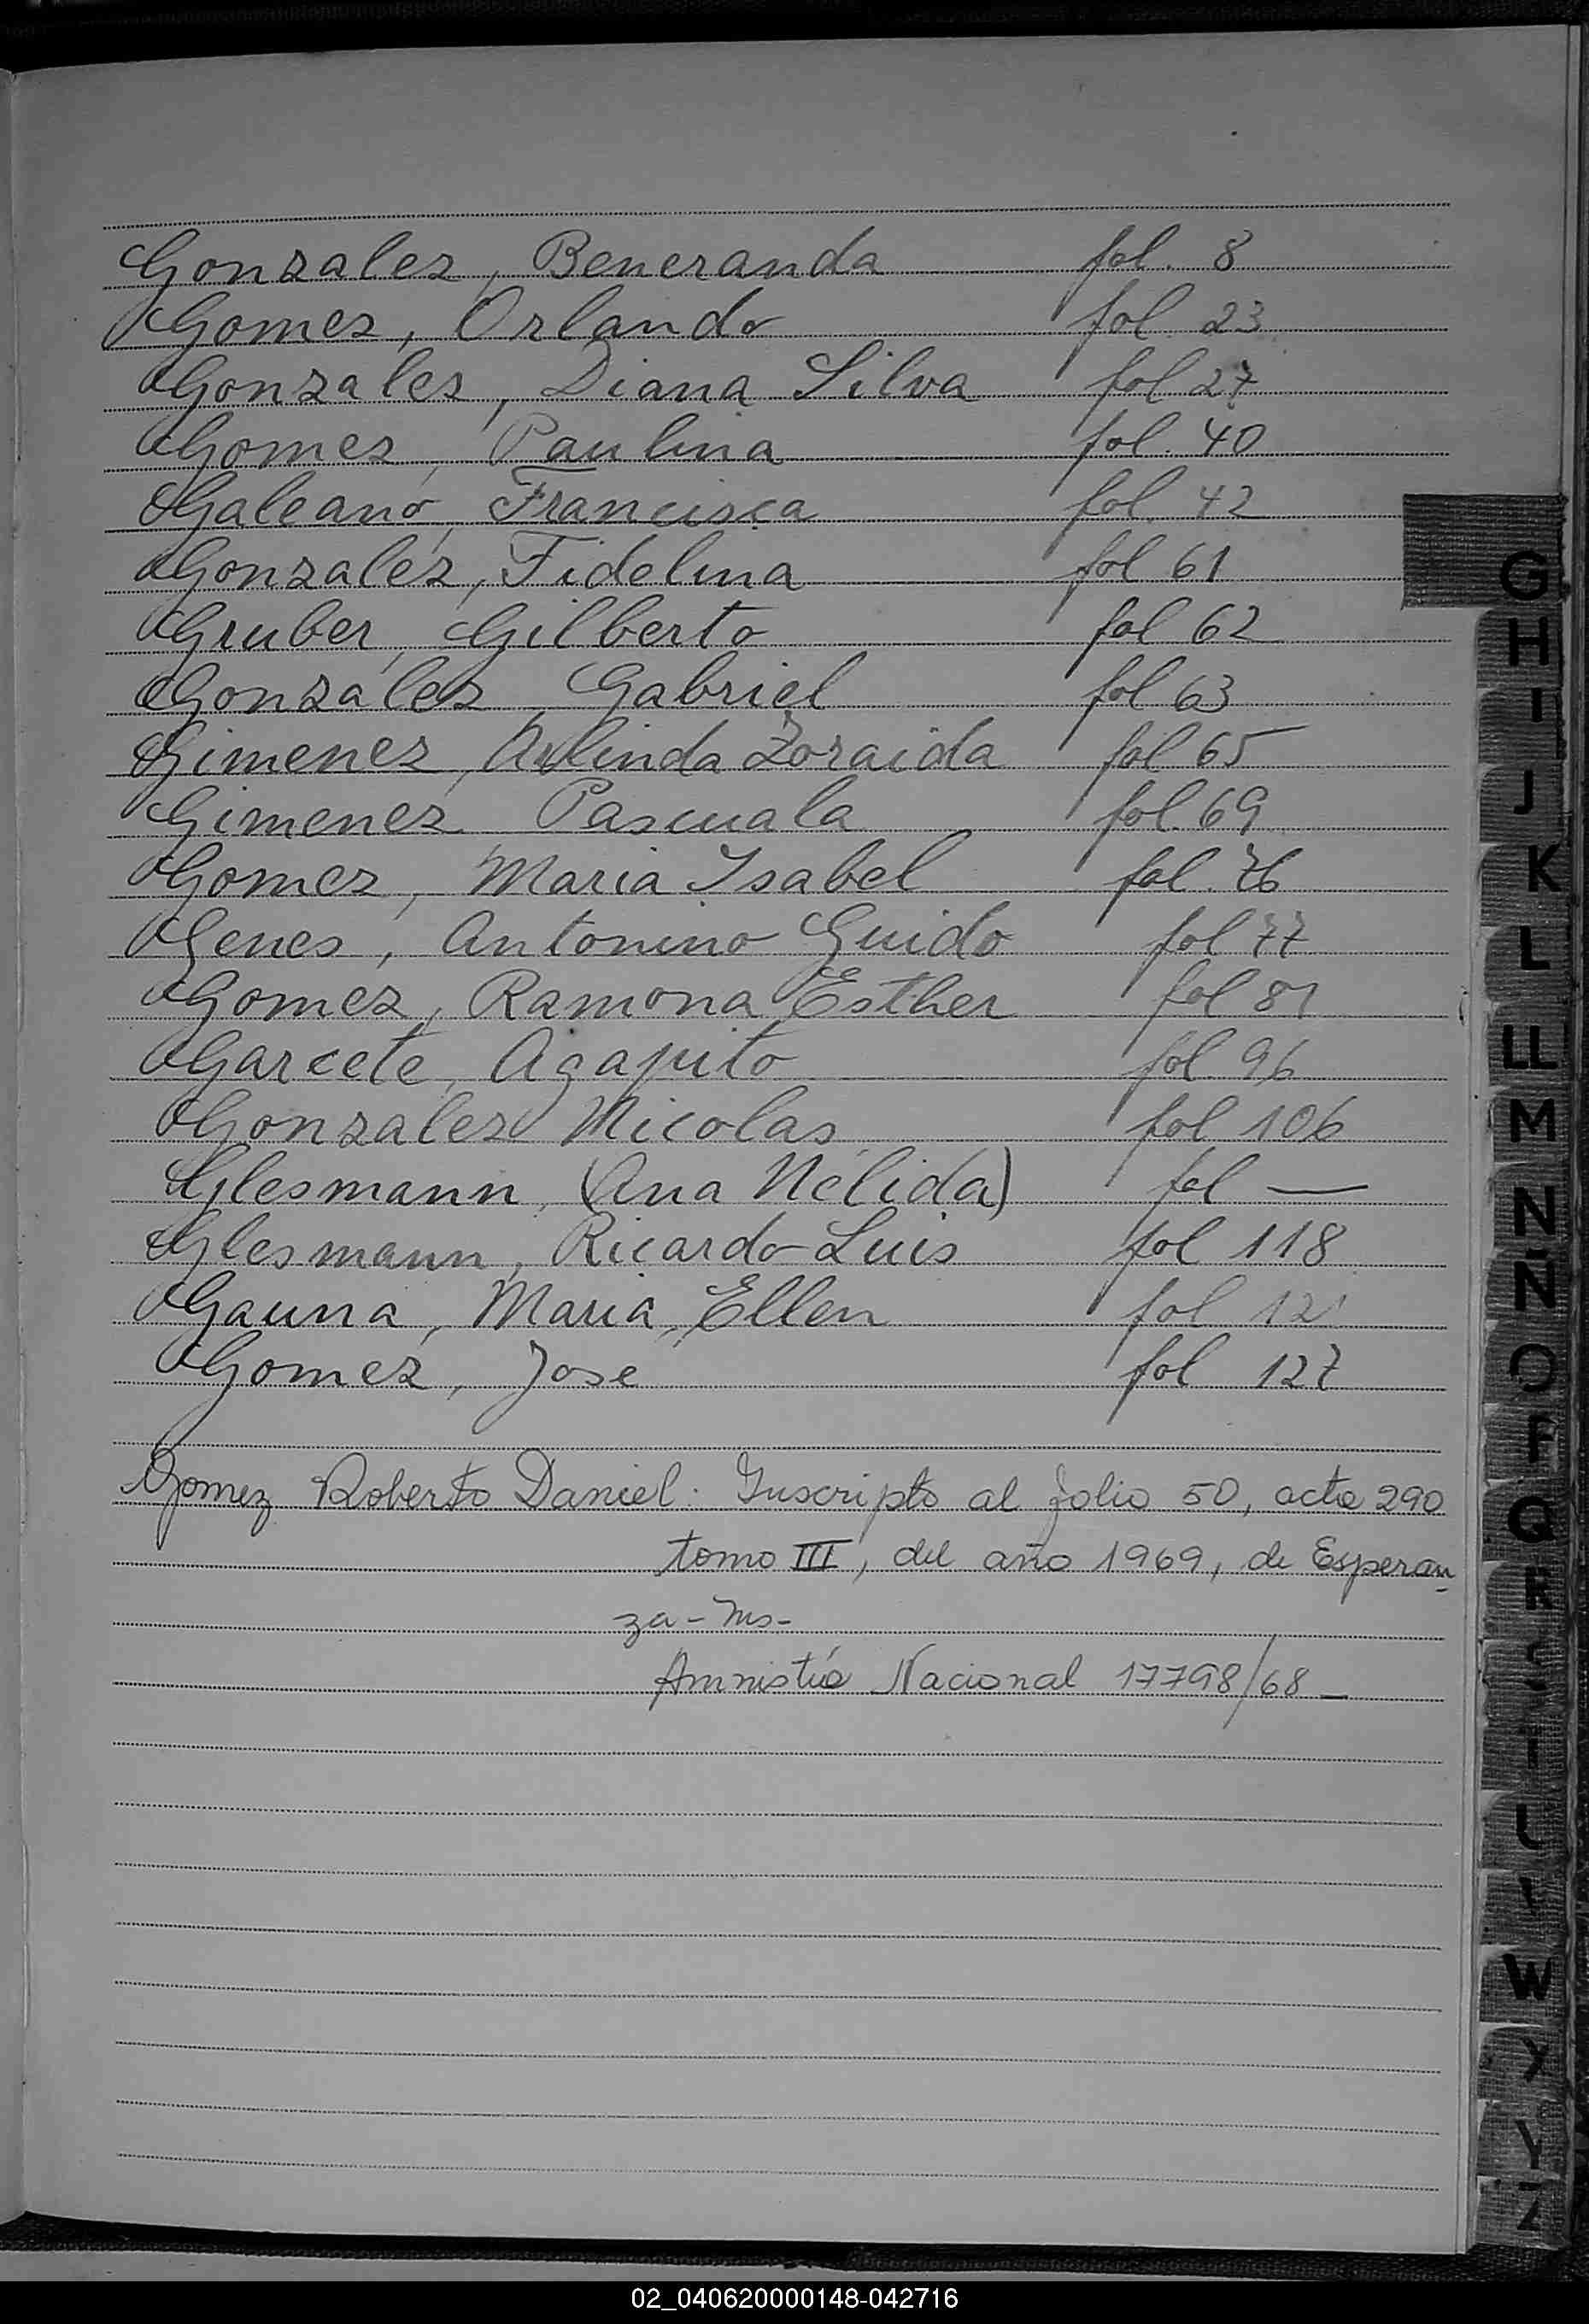 Gonzalez, Beneranda fol. 8
Gomez, Orlando fol. 23
Gonzalez, Diana Silva fol 27
Gomez, Paulina fol. 40
Galeano, Francisca fol. 42
Gonzalez, Fidelina fol 61
Gruber, Gilberto fol 62
Gonzalez, Gabriel fol 63
Gimenez, Arlinda Zoraida fol 65
Gimenez Pascuala fol. 69
Gomez, Maria Isabel fol. 76
Genes, Antonino Guido fol 77
Gomez, Ramona Esther fol 81
Garcete, Agapito fol. 96
Gonzalez Nicolas fol 106
Glesmann, (Ana Nélida) fol —
Glesmann, Ricardo Luis fol 118
Gauna, Maria Ellen fol 121
Gomez, Jose fol 127
Gomez Roberto Daniel: Inscripto al folio 50, acta 290
tomo III, del año 1969, de Esperan
za - Ms-
Amnistía Nacional 17798/68 -
G
H
I
J
K
L
LL
M
N
Ñ
O
P
Q
R
S
T
U
W
X
Y
Z
02_040620000148-042716